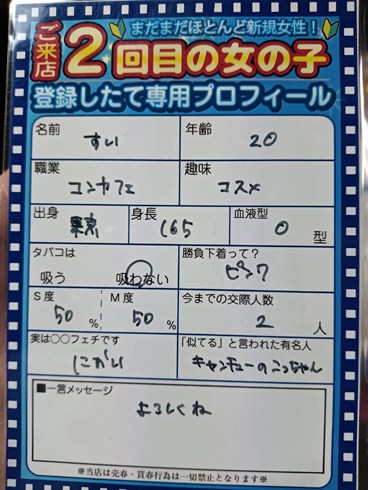 まだまだほとんど新規女性！
ご来店
2回目の女の子
登録したて専用プロフィール
名前 すい
年齢 20
職業 コンカフェ
趣味 コスメ
出身 東京
身長 165
血液型 O 型
タバコは
吸う 吸わない
勝負下着って？
ピンク
S度 50 %
M度 50 %
今までの交際人数
2 人
実は○○フェチです
においﾞ
「似てる」と言われた有名人
キャンチューのこっちゃん
■一言メッセージ
よろしくね
※当店は売春・買春行為は一切禁止となります※